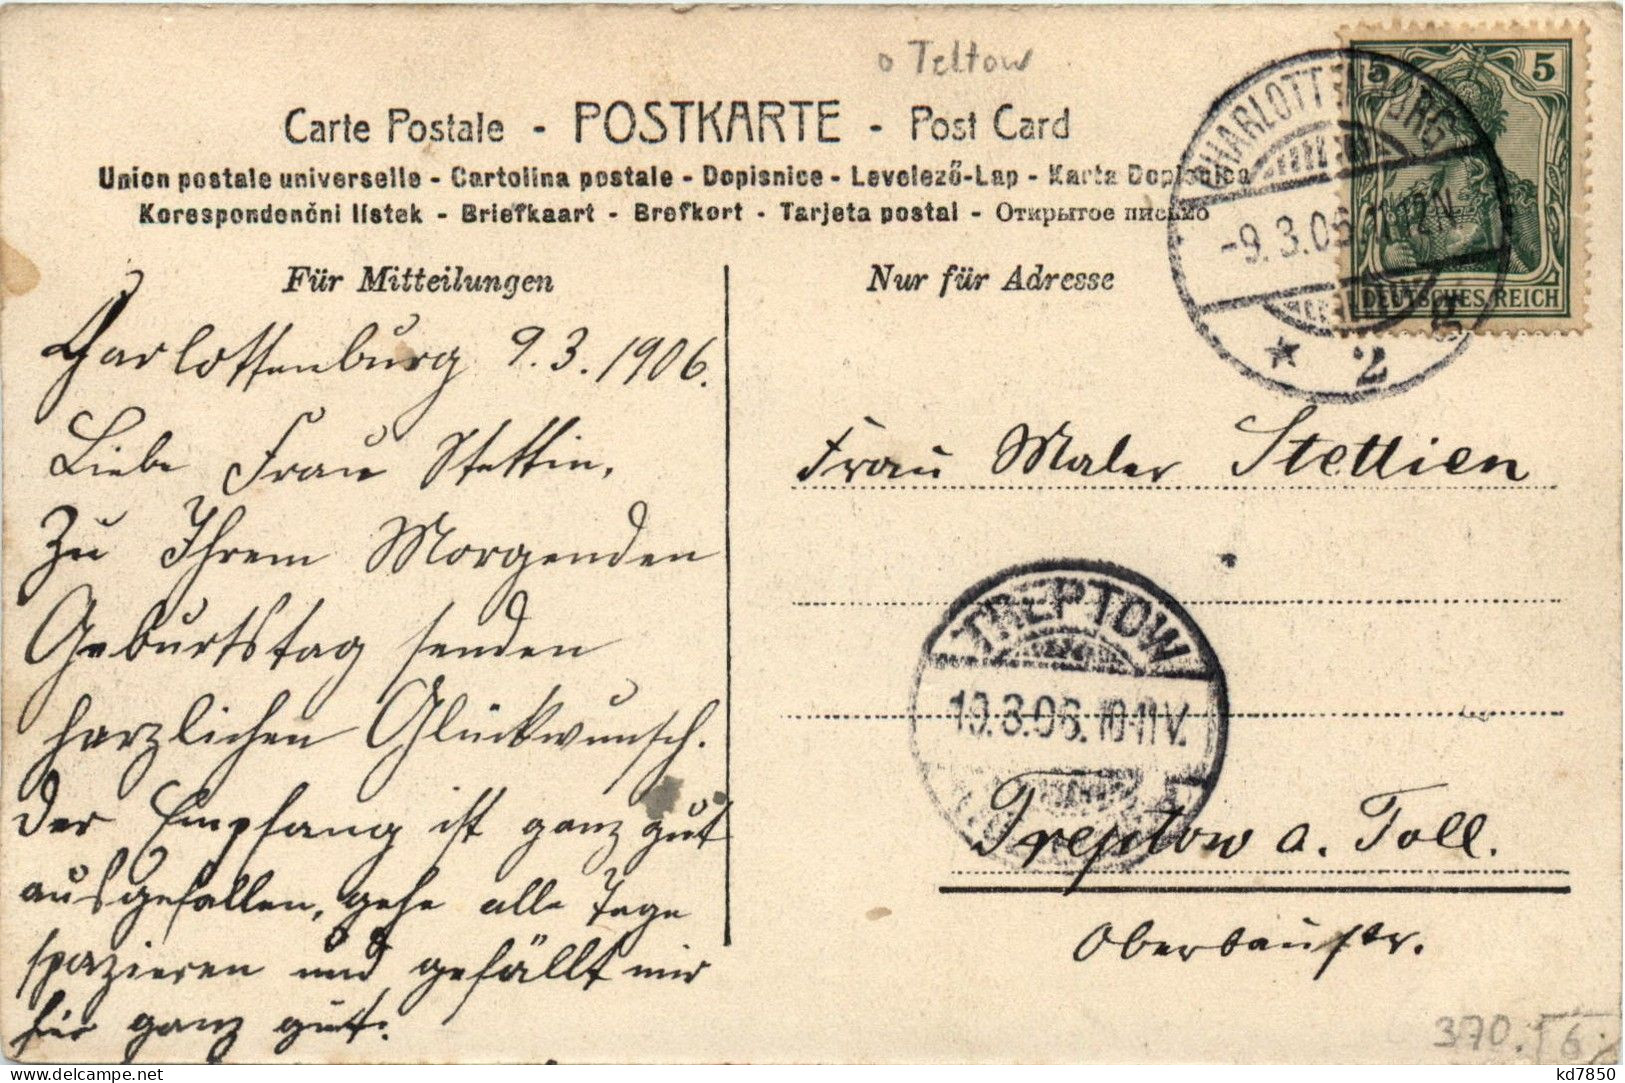 o Teltow
Carte Postale - POSTKARTE - Post Card
Union postale universelle - Cartolina postale - Dopisnice - Levelező-Lap - Karta Dopisnica
Korespondenční lístek - Briefkaart - Brefkort - Tarjeta postal - Открытое письмо
CHARLOTTENBURG
-9.3.06. 11-12N.
* 2 g
5 5
DEUTSCHES REICH
Für Mitteilungen
Charlottenburg 9.3.1906.
Liebe Frau Stettin,
Zu Ihrem Morgenden
Geburtstag senden
herzlichen Glückwunsch.
Der Empfang ist ganz gut
ausgefallen, gehe alle Tage
spazieren und gefällt mir
hier ganz gut.
Nur für Adresse
Frau Maler Stettien
TREPTOW
10.3.06. 10-11V.
Treptow a. Toll.
Oberbaustr.
370. I 6
kd7850